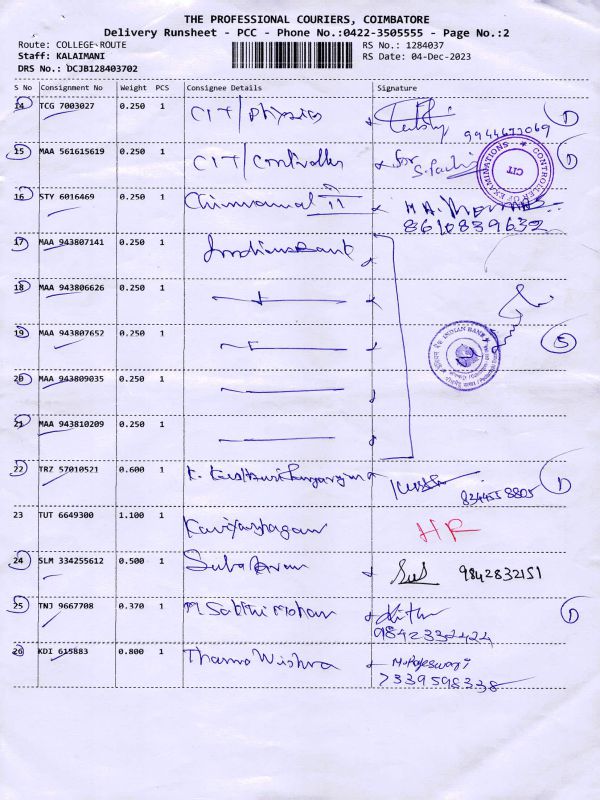 THE PROFESSIONAL COURIERS, COIMBATORE
Delivery Runsheet - PCC - Phone No.:0422-3505555 - Page No.:2
Route: COLLEGE ROUTE RS No.: 1284037
Staff: KALAIMANI RS Date: 04-Dec-2023
DRS No.: DCJB128403702
S No Consignment No Weight PCS Consignee Details Signature
14 TCG 7003027 0.250 1 CIT/Physics
15 MAA 561615619 0.250 1 CIT/Controller for
CONTROLLER OF EXAMINATIONS CIT
16 STY 6016469 0.250 1
8610839632
17 MAA 943807141 0.250 1 Indian Bank
18 MAA 943806626 0.250 1
19 MAA 943807652 0.250 1 5
INDIAN BANK
20 MAA 943809035 0.250 1
21 MAA 943810209 0.250 1
22 TRZ 57010521 0.600 1 K.
8344558805
23 TUT 6649300 1.100 1 HR
24 SLM 334255612 0.500 1 9842832151
25 TNJ 9667708 0.370 1 M Sakthi Mohan
26 KDI 615883 0.800 1 M. Rajeswari
7339598338